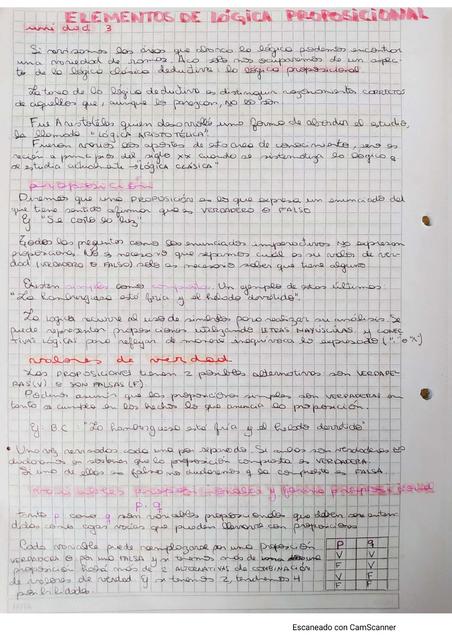 ELEMENTOS DE LÓGICA PROPOSICIONAL
unidad 3
Si revisamos las áreas que abarca la lógica podemos encontrar
una variedad de ramas. Acá solo nos ocuparemos de un aspec-
to de la lógica clásica deductiva: la lógica proposicional.
La tarea de la lógica deductiva es distinguir razonamientos CORRECTOS
de aquellos que, aunque lo parezcan, no lo son
Fue Aristóteles quien desarrolló una forma de abordar el estudio,
la llamada "LÓGICA ARISTOTÉLICA"
Fueron varios los aportes de esta área de conocimiento, pero es
recién a principios del siglo XX cuando se sistematiza la lógica q
se estudia actualmente → LÓGICA CLÁSICA"
proposición
Diremos que una PROPOSICIÓN es lo que expresa un enunciado del
que tiene sentido afirmar que es VERDADERO o FALSO
Ej "Se cortó la luz"
Todas las preguntas como los enunciados imperativos NO expresan
proposiciones. No es necesario que sepamos cuál es su valor de ver-
dad (VERDADERO o FALSO) solo es necesario saber que tiene alguno
Existen simples como compuesta. Un ejemplo de estas últimas:
"La hamburguesa está fría y el helado derretido".
La lógica recurre al uso de símbolos para realizar su análisis. Se
puede representar proposiciones utilizando LETRAS MAYÚSCULAS, y CONEC-
TIVAS LÓGICAS para reflejar de manera inequívoca lo expresado
valores de verdad
Las PROPOSICIONES tienen 2 posibles alternativas son VERDADE-
RAS(V) o SON FALSAS (F)
Podemos asumir que las proposiciones simples son VERDADERAS en
tanto se cumpla en los hechos lo que anuncia la proposición.
Ej: B.C "La hamburguesa está fría y el helado derretido"
• Una vez revisadas cada una por separado. Si ambas son verdaderas no
dudaremos en sostener que la proposición compuesta es VERDADERA
Si una de ellas es falsa no dudaremos q la compuesta es FALSA.
variables proposicionales y forma proposicional
p. q
Tanto p como q son variables proposicionales que deben ser enten-
didas como cajas vacías que pueden llenarse con proposiciones
Cada variable puede reemplazarse por una proposición
VERDADERA o por una FALSA y si tenemos más de una
proposición habrá más de 2 ALTERNATIVAS de COMBINACIÓN
de valores de verdad Ej si tenemos 2, tendremos 4
posibilidades.
p q
V V
F V
V F
F F
Escaneado con CamScanner